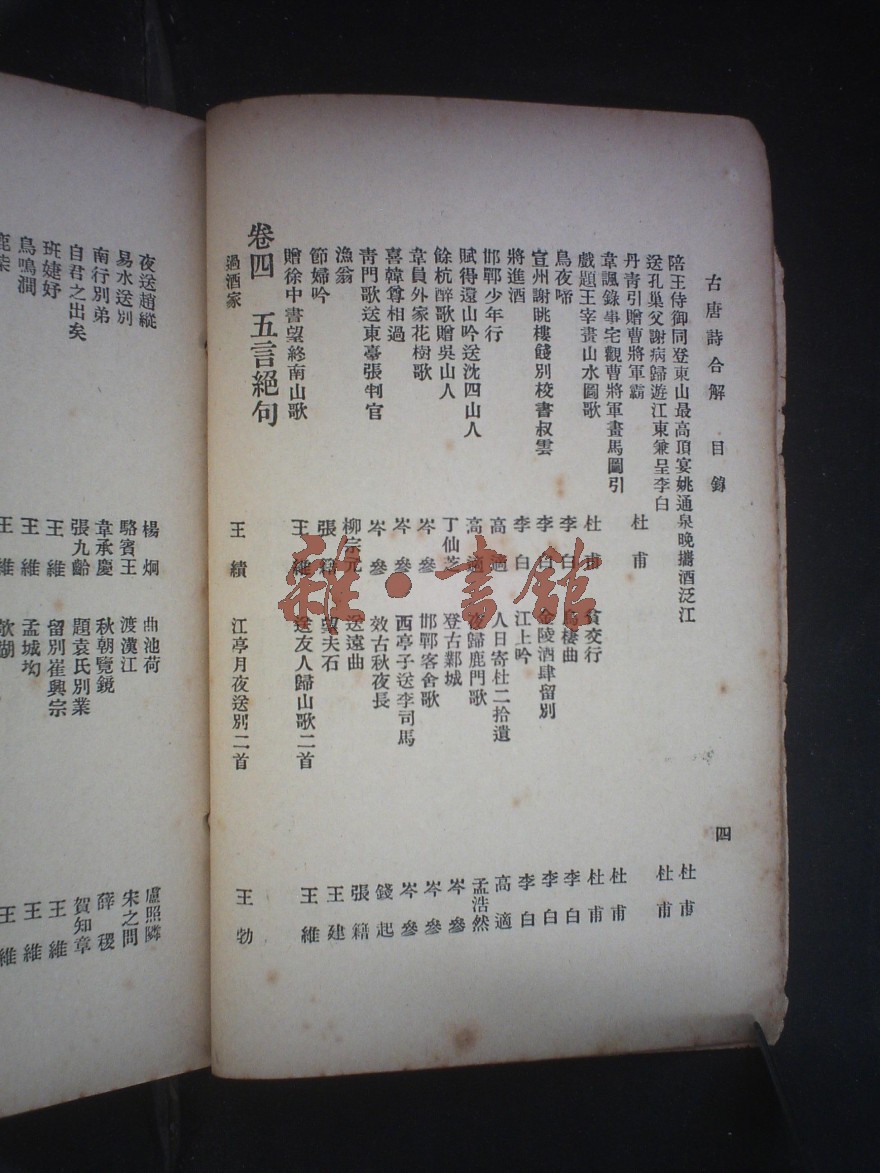 古唐詩合解 目錄
四
陪王侍御同登東山最高頂宴姚通泉晚攜酒泛江 杜甫
送孔巢父謝病歸遊江東兼呈李白 杜甫
丹青引贈曹將軍霸 杜甫
韋諷錄事宅觀曹將軍畫馬圖引 杜甫
戲題王宰畫山水圖歌 杜甫 貧交行 杜甫
烏夜啼 李白 烏棲曲 李白
宣州謝眺樓餞別校書叔雲 李白 金陵酒肆留別 李白
將進酒 李白 江上吟 李白
邯鄲少年行 高適 人日寄杜二拾遺 高適
賦得還山吟送沈四山人 高適 夜歸鹿門歌 孟浩然
餘杭醉歌贈吳山人 丁仙芝 登古鄴城 岑參
韋員外家花樹歌 岑參 邯鄲客舍歌 岑參
喜韓尊相過 岑參 西亭子送李司馬 岑參
青門歌送東臺張判官 岑參 效古秋夜長 錢起
漁翁 柳宗元 送遠曲 張籍
節婦吟 張籍 望夫石 王建
贈徐中書望終南山歌 王維 送友人歸山歌二首 王維
卷四 五言絕句
過酒家 王績 江亭月夜送別二首 王勃
夜送趙縱 楊炯 曲池荷 盧照隣
易水送別 駱賓王 渡漢江 宋之問
南行別弟 韋承慶 秋朝覽鏡 薛稷
自君之出矣 張九齡 題袁氏別業 賀知章
班婕妤 王維 留別崔興宗 王維
鳥鳴澗 王維 孟城坳 王維
鹿柴 王維 欹湖 王維
雜·書館